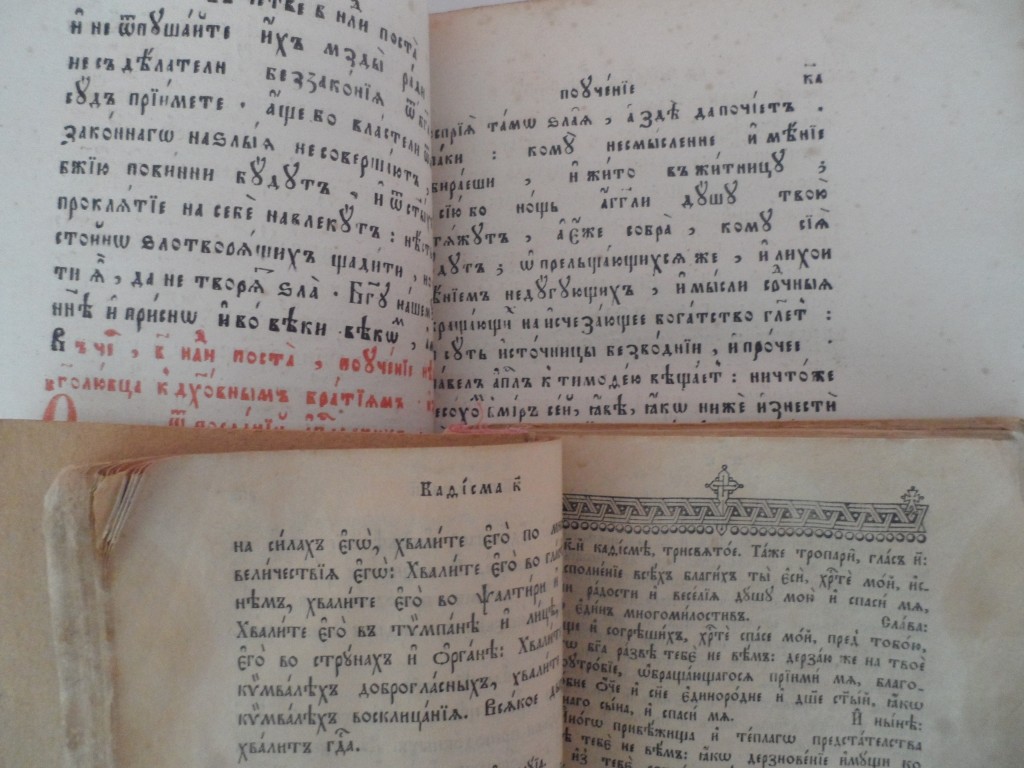 и҆ не ѿпꙋща́йте и҆́хъ мзды̀ ра́ди
не съдѣ́латели беззако́нїѧ
сꙋ́дъ прїи́мете. а҆́ще бо вла́стели
зако́ннагѡ на ѕлы́ѧ не соверша́ютъ,
бж҃їю пови́нни бꙋ́дꙋтъ, и҆ ѿ ст҃ы́
проклѧ́тїе на себѐ навлекꙋ́тъ: нѣ́сть
сто́йнѡ ѕлотворѧ́щихъ щади́ти, но
ти ѧ҆̀, да не творѧ́тъ ѕла̀. Бг҃ꙋ на́шемꙋ
нн҃ѣ и҆ при́снѡ и҆ во вѣ́ки вѣкѡ́м,
Въ ч҃і, в҃ нⷣли поста̀, поꙋче́нїе
к̾ дх҃о́внымъ бра́тїѧм
ѿ посла́нїй
поꙋче́нїе к҃а
спрїѧ̀ та́мѡ ѕла̑ѧ, а҆ здѣ̀ да почі́етъ.
па́ки: комꙋ̀ несмы́сленне и҆мѣ́нїе
бира́еши, и҆ жи́то въ жи́тницꙋ;
сїю́ бо но́щь а҆́гг҃ли дꙋ́шꙋ твою̀
тѧ́жꙋтъ, а҆ є҆́же собра̀, комꙋ̀ сїѧ̑
дꙋтъ; ѡ҆ прельща́ющихсѧ же, и҆ лихои
нїемъ недꙋ́гꙋющихъ, и҆ мы́сли срⷣчныѧ
враща́ющи на и҆счеза́ющее бога́тство гл҃етъ:
сꙋ́ть и҆сто́чницы безво́днїи, и҆ про́чее.
па́велъ а҆пⷭ҇лъ к̾ тимоѳе́ю вѣща́етъ: ничто́же
несохо́мъ в̾ми́ръ се́й, ꙗ҆́вѣ, ꙗ҆́кѡ ниже́ и҆знестѝ
Каѳі́сма к҃
на си́лахъ є҆гѡ̀, хвали́те є҆го̀ по
вели́чествїѧ є҆гѡ̀: Хвали́те є҆го̀ во гла́
нѣмъ, хвали́те є҆го̀ во ѱалти́ри и҆
Хвали́те є҆го̀ въ тѷмпа́нѣ и҆ ли́цѣ,
є҆го̀ во стрꙋ́нахъ и҆ ѻ҆рга́нѣ: Хвали́те
кѷмва́лѣхъ доброгла́сныхъ, хвали́те
кѷмва́лѣхъ восклица́нїѧ. Всѧ́кое ды
хва́литъ гдⷭ҇а.
к҃-й каѳі́смѣ, трист҃о́е. Та́же тропарѝ, гла́съ и҃:
сполне́нїе всѣ́хъ благи́хъ ты̀ є҆сѝ, хрⷭ҇тѐ мо́й, и҆с-
ни ра́дости и҆ весе́лїѧ дꙋ́шꙋ мою̀ и҆ спасѝ мѧ̀,
є҆ди́нъ многомилостивъ. Сла́ва:
ще и҆ согрѣши́хъ, хрⷭ҇тѐ спа́се мо́й, пред̾ тобо́ю,
бг҃а ра́звѣ тебє̀ не вѣ́мъ: дерза́ю же на твоѐ
оꙋтро́бїе, ѡ҆браща́ющагосѧ прїимѝ мѧ̀, благо-
бне ѻ҆́ч҃е и҆ сн҃е є҆диноро́дне и҆ дш҃е ст҃ы́й, ꙗ҆́кѡ
наго сы́на, и҆ спасѝ мѧ̀. И҆ ны́нѣ:
мно́гѡ прибѣ́жища и҆ те́плагѡ предста́телства
тебє̀ не вѣ́мъ: ꙗ҆́кѡ дерзнове́нїе и҆мꙋ́щи ко
и҆з̾ тебє̀